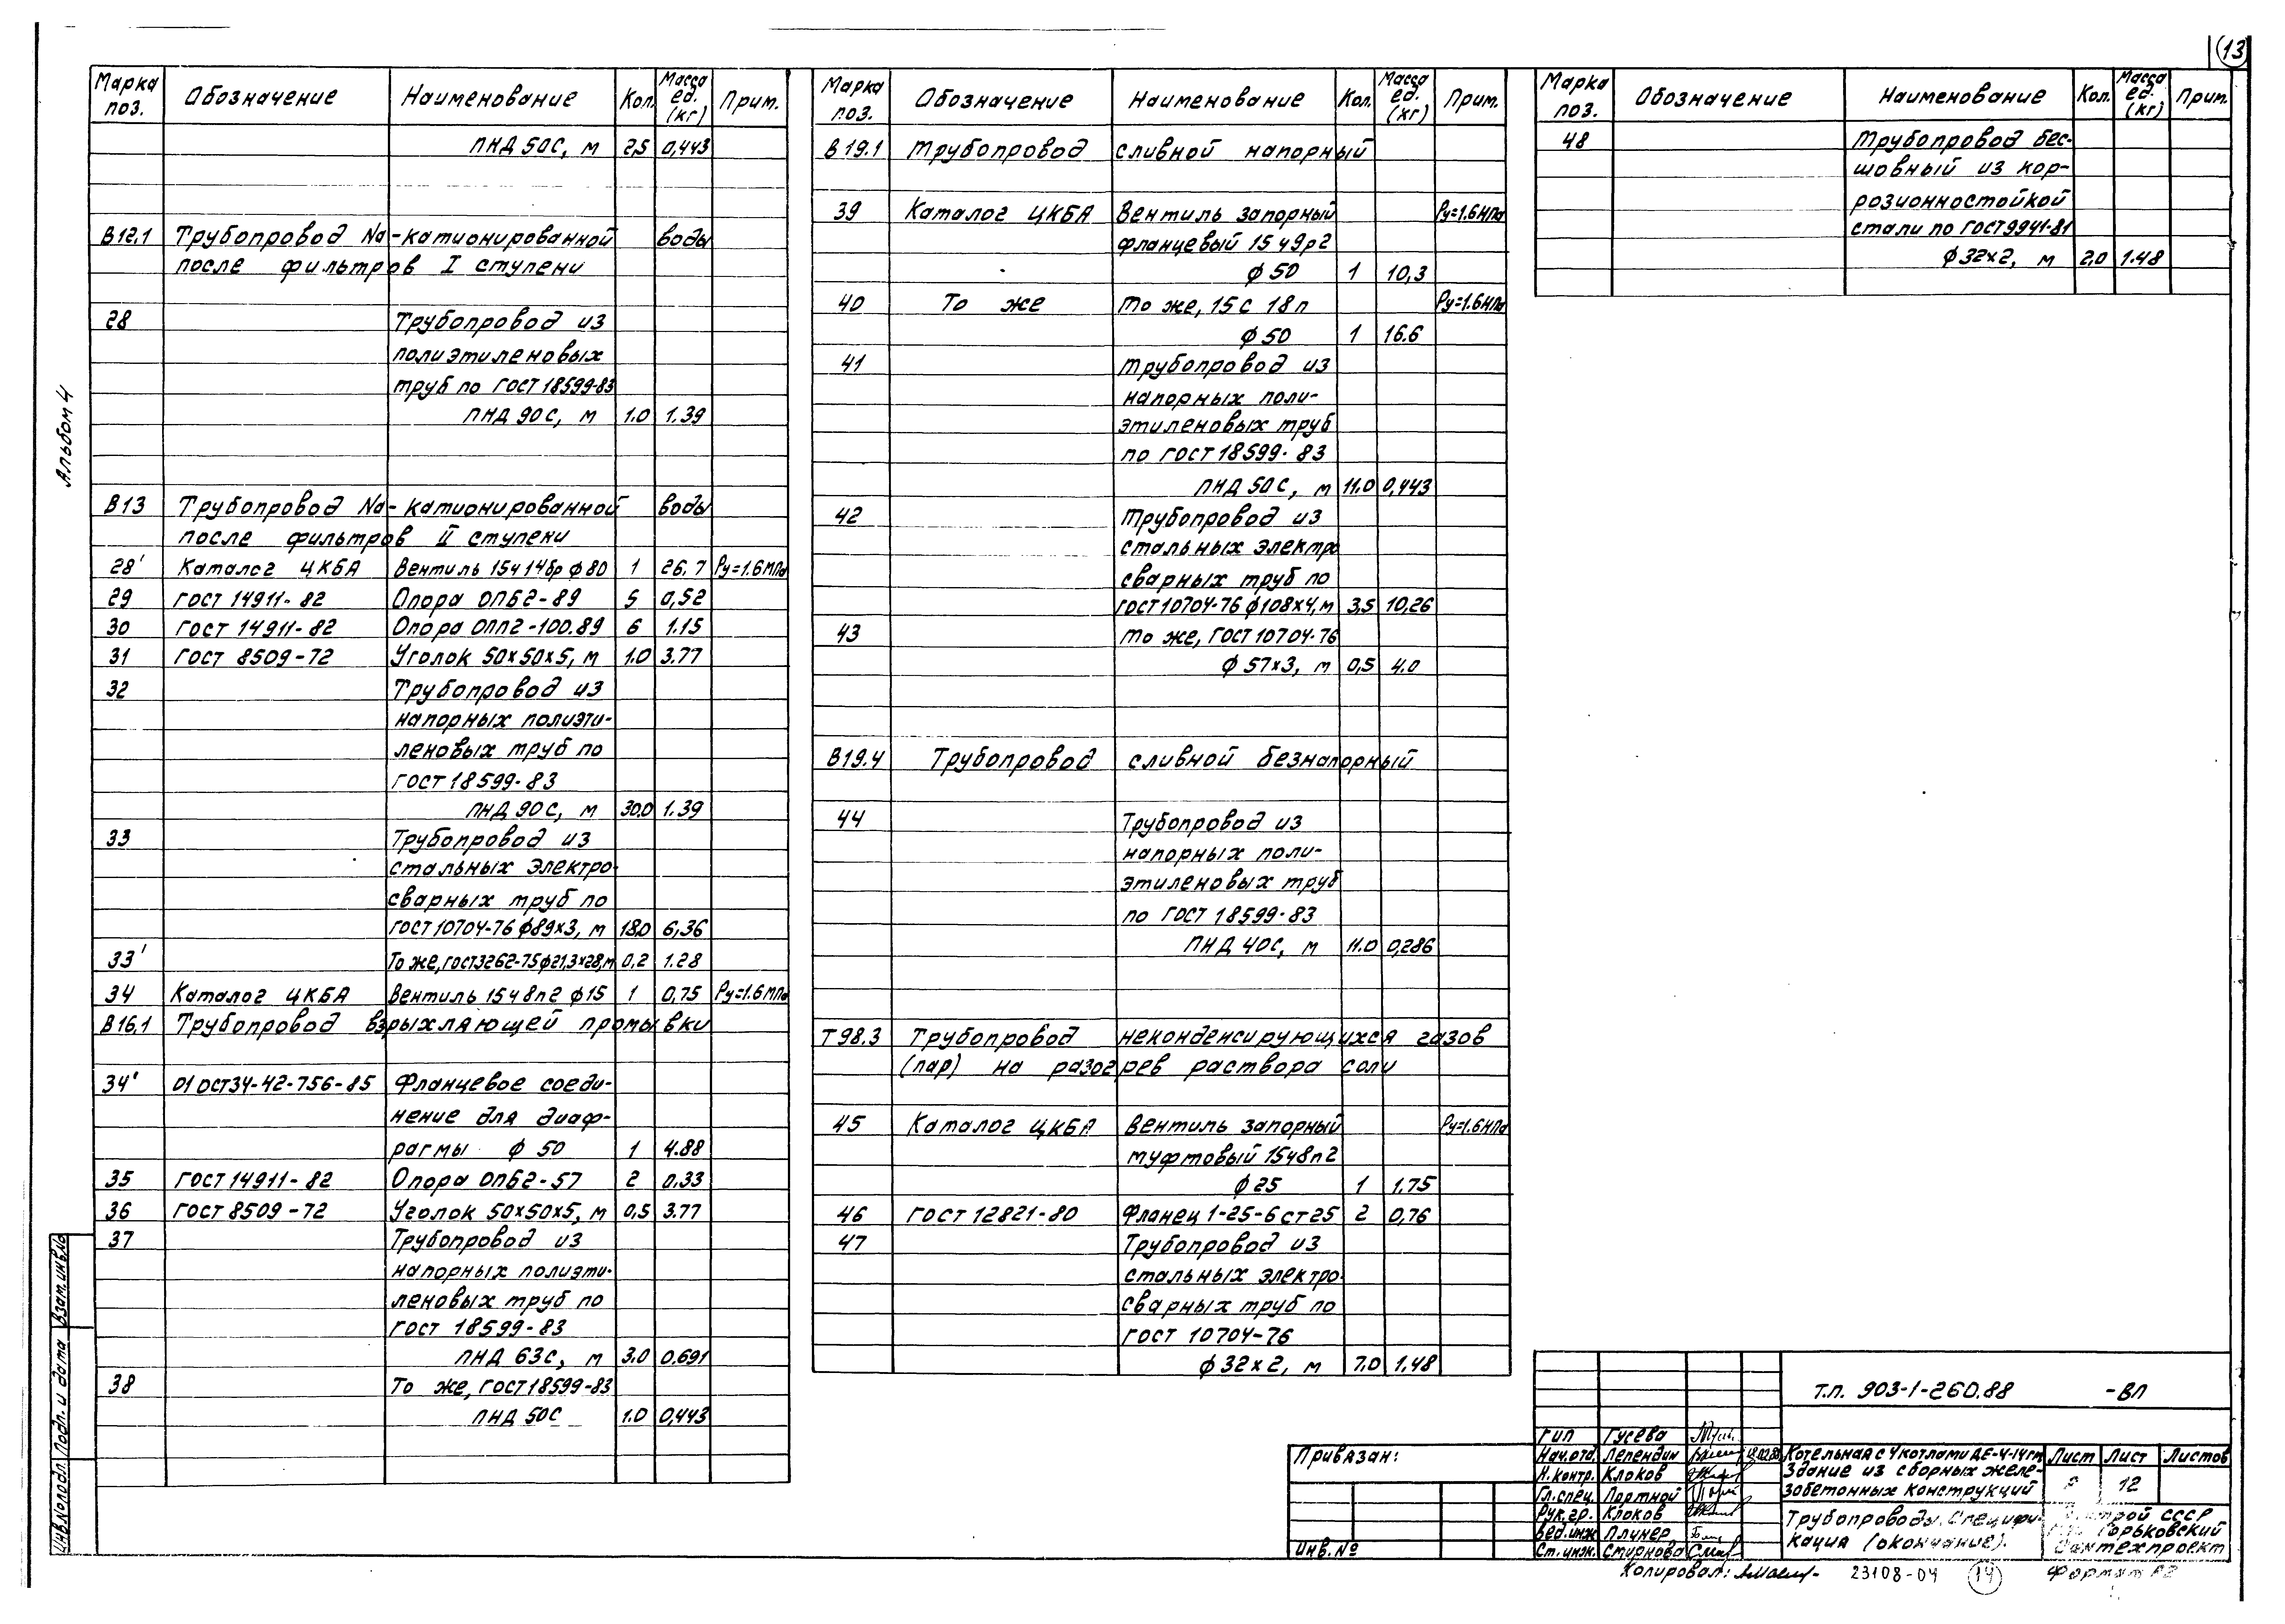 13
Альбом 4
Марка поз. Обозначение Наименование Кол. Масса ед. (кг) Прим.
ПНД 50С, м 2,5 0,443
В12.1 Трубопровод Na-катионированной воды
после фильтров I ступени
28 Трубопровод из
полиэтиленовых
труб по ГОСТ 18599-83
ПНД 90С, м 1.0 1.39
В13 Трубопровод Na-катионированной воды
после фильтров II ступени
28' Каталог ЦКБА Вентиль 15ч14бр ф80 1 26.7 Ру=1.6МПа
29 ГОСТ 14911-82 Опора ОПБ2-89 5 0,52
30 ГОСТ 14911-82 Опора ОПП2-100.89 6 1.15
31 ГОСТ 8509-72 Уголок 50х50х5, м 1.0 3.77
32 Трубопровод из
напорных полиэти-
леновых труб по
ГОСТ 18599-83
ПНД 90С, м 30.0 1.39
33 Трубопровод из
стальных электро-
сварных труб по
ГОСТ 10704-76 ф89х3, м 18.0 6,36
33' То же, ГОСТ3262-75 ф21,3х2.8, м 0,2 1.28
34 Каталог ЦКБА Вентиль 15ч8п2 ф15 1 0,75 Ру=1.6МПа
В16.1 Трубопровод взрыхляющей промывки
34' 01 ОСТ34-42-756-85 Фланцевое соеди-
нение для диаф-
рагмы ф 50 1 4.88
35 ГОСТ 14911-82 Опора ОПБ2-57 2 0.33
36 ГОСТ 8509-72 Уголок 50х50х5, м 0,5 3.77
37 Трубопровод из
напорных полиэти-
леновых труб по
ГОСТ 18599-83
ПНД 63С, м 3.0 0.691
38 То же, ГОСТ 18599-83
ПНД 50С 1.0 0,443
Марка поз. Обозначение Наименование Кол. Масса ед. (кг) Прим.
В19.1 Трубопровод сливной напорный
39 Каталог ЦКБА Вентиль запорный Ру=1.6МПа
фланцевый 15ч9р2
ф 50 1 10,3
40 То же То же, 15с 18п Ру=1.6МПа
ф 50 1 16.6
41 Трубопровод из
напорных поли-
этиленовых труб
по ГОСТ 18599-83
ПНД 50С, м 11.0 0,443
42 Трубопровод из
стальных электро
сварных труб по
ГОСТ 10704-76 ф108х4, м 3,5 10,26
43 То же, ГОСТ 10704-76
ф 57х3, м 0,5 4.0
В19.4 Трубопровод сливной безнапорный
44 Трубопровод из
напорных поли-
этиленовых труб
по ГОСТ 18599-83
ПНД 40С, м 11.0 0,286
Т98.3 Трубопровод неконденсирующихся газов
(пар) на разогрев раствора соли
45 Каталог ЦКБА Вентиль запорный Ру=1.6МПа
муфтовый 15ч8п2
ф 25 1 1.75
46 ГОСТ 12821-80 Фланец 1-25-6 ст25 2 0,76
47 Трубопровод из
стальных электро-
сварных труб по
ГОСТ 10704-76
ф 32х2, м 7.0 1,48
Марка поз. Обозначение Наименование Кол. Масса ед. (кг) Прим.
48 Трубопровод бес-
шовный из кор-
розионностойкой
стали по ГОСТ 9941-81
ф32х2, м 2.0 1.48
Инв.№ подл. Подп. и дата Взам.инв.№
Привязан:
Инв.№
Т.п. 903-1-260.88 -ВП
ГИП Гусева
Нач.отд. Лепендин
Н.контр. Клоков
Гл.спец. Портной
Рук.гр. Клоков
Вед.инж. Плинер
Ст.инж. Смирнова
Котельная с 4 котлами ДЕ-4-14гм
Здание из сборных желе-
зобетонных конструкций
Лист Лист Листов
Р 12
Трубопроводы. Специфи-
кация (окончание).
Госстрой СССР
Горьковский
Сантехпроект
Копировал: 23108-04 14 Формат А2